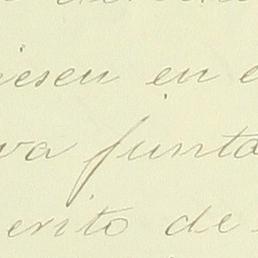 iesen en e
va junta
erito de